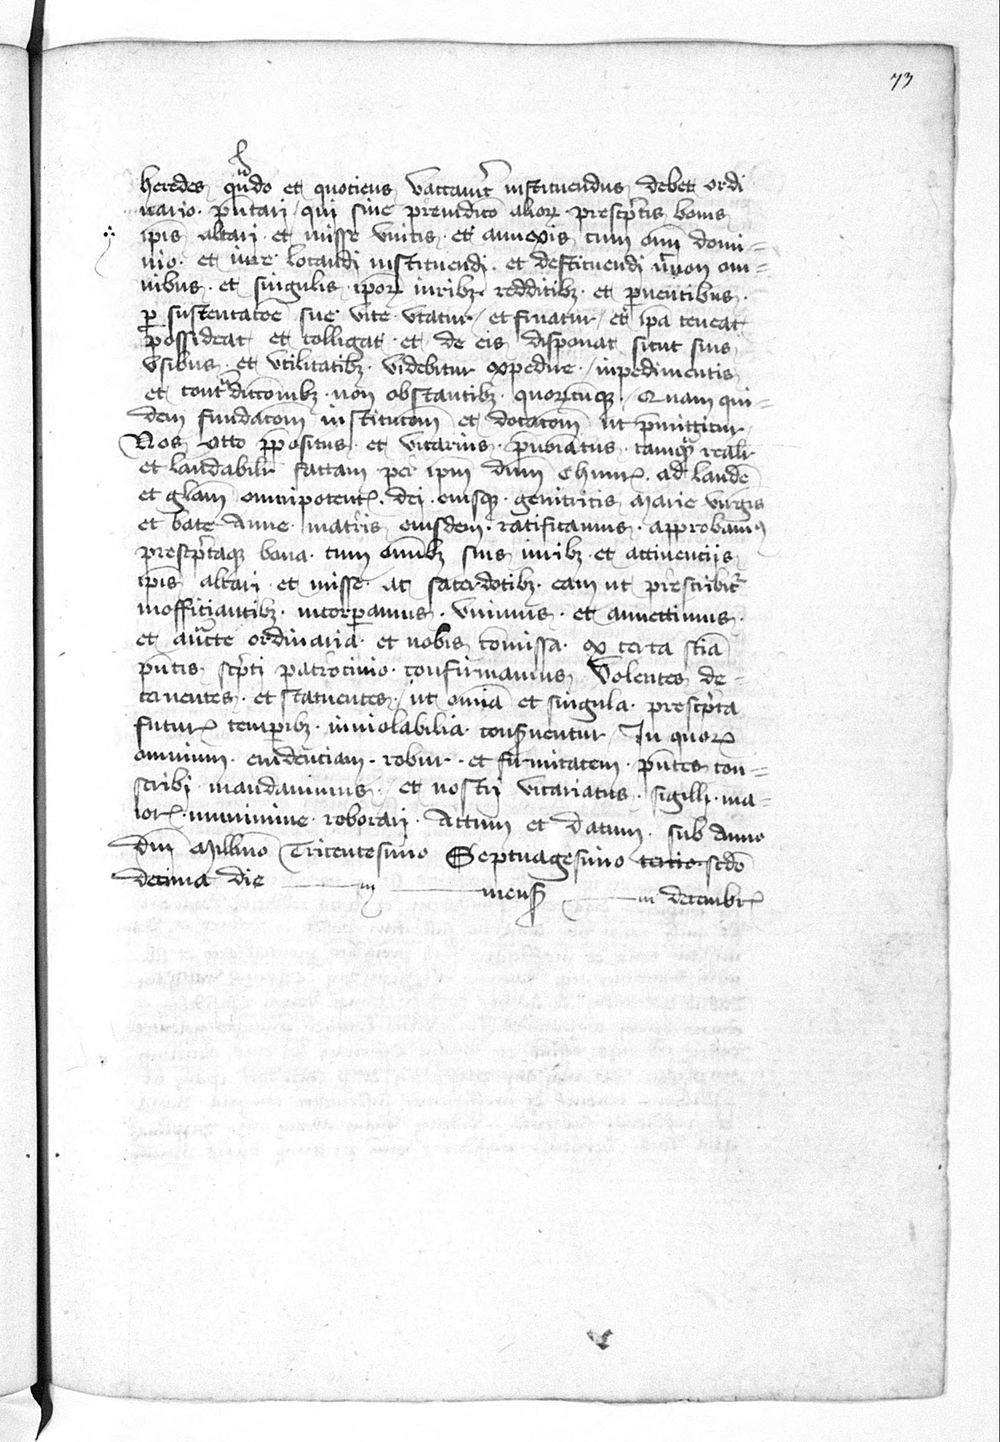 73
heredes qūdo et quotiens vaccauit̄ instituendus debet ordi
nario. pn̄tari / qui sine preiudico alior prescp̄tis bonis
ip̄is altari et misse vnitis et annexis cum omī domi=
nio. et iure locandi instituendi. et destituendi nōn om=
nibus. et singulis. ip̄or iuribꝫ redditibꝫ et ꝓuentibus.
ꝓ sustentacōe sue vite vtatur / et fruatur / et ip̄a teneat
possideat et colligat et de eis disponat sicut suis
vsibus et vtilitatibꝫ videbitur expedire. inpedimentis
et cont̄ dictiōnibꝫ non obstantibꝫ quorūcūqꝫ. Quam qui=
dem fundacōm institucōm et dotacōm ut p̄mittitur
Nos Otto p̄positus et vicarius p̄nōiatus. tamqꝫ realr̄
et laudabilr̄ factam per ip̄m dn̄m ad laudē
et glām omnipotent. dei eiusqꝫ genitricis Marie virgīs
et bāte Anne matris eiusdem. ratificamus approbamꝰ
prescp̄taqꝫ bona. cum om̄ibꝫ suis iuribꝫ et attinenciis
ip̄is altari et misse ac sacerdotibꝫ eam ut prescribit̄
inofficiantibꝫ incorꝑamus. vnimus. et annectimus.
et auc̄te ordinaria et nobis comissa ex certa sciā
pn̄tis scp̄ti patrocinio confirmamus Volentes de=
cernentes et statuentes ut omīa et singula prescp̄ta
futur temꝑibꝫ inuiolabilia conseruentur In quor
omnium euidenciam robur et firmitatem pn̄tes con=
scribi mandauimus et nostri vicariatus sigilli ma=
ior munimine roborari Actum et datum sub Anno
dn̄i Millīmo Tricentesimo Septuagesimo tertio scdō
decima die mens̄ decembr